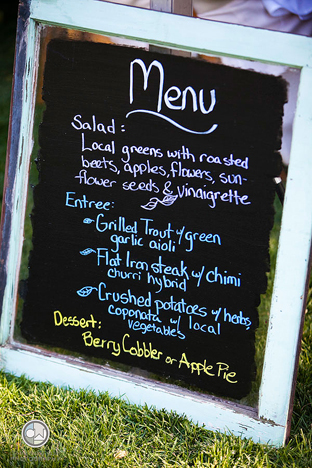 Menu
Salad:
Local greens with roasted
beets, apples, flowers, sun-
flower seeds & vinaigrette
Entree:
Grilled Trout w/ green
garlic aioli
Flat Iron steak w/ chimi
churri hybrid
Crushed potatoes w/ herbs,
coponata w/ local
vegetables
Dessert:
Berry Cobbler or Apple Pie